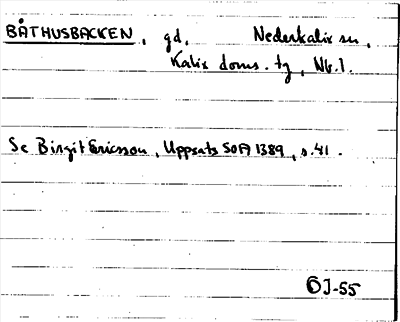 BÅTHUSBACKEN, gd, Nederkalix sn,
Kalix doms. tg, Nb.l.
Se Birgit Ericsson, Uppsats SOFI 1389, s. 41.
ÖJ-55